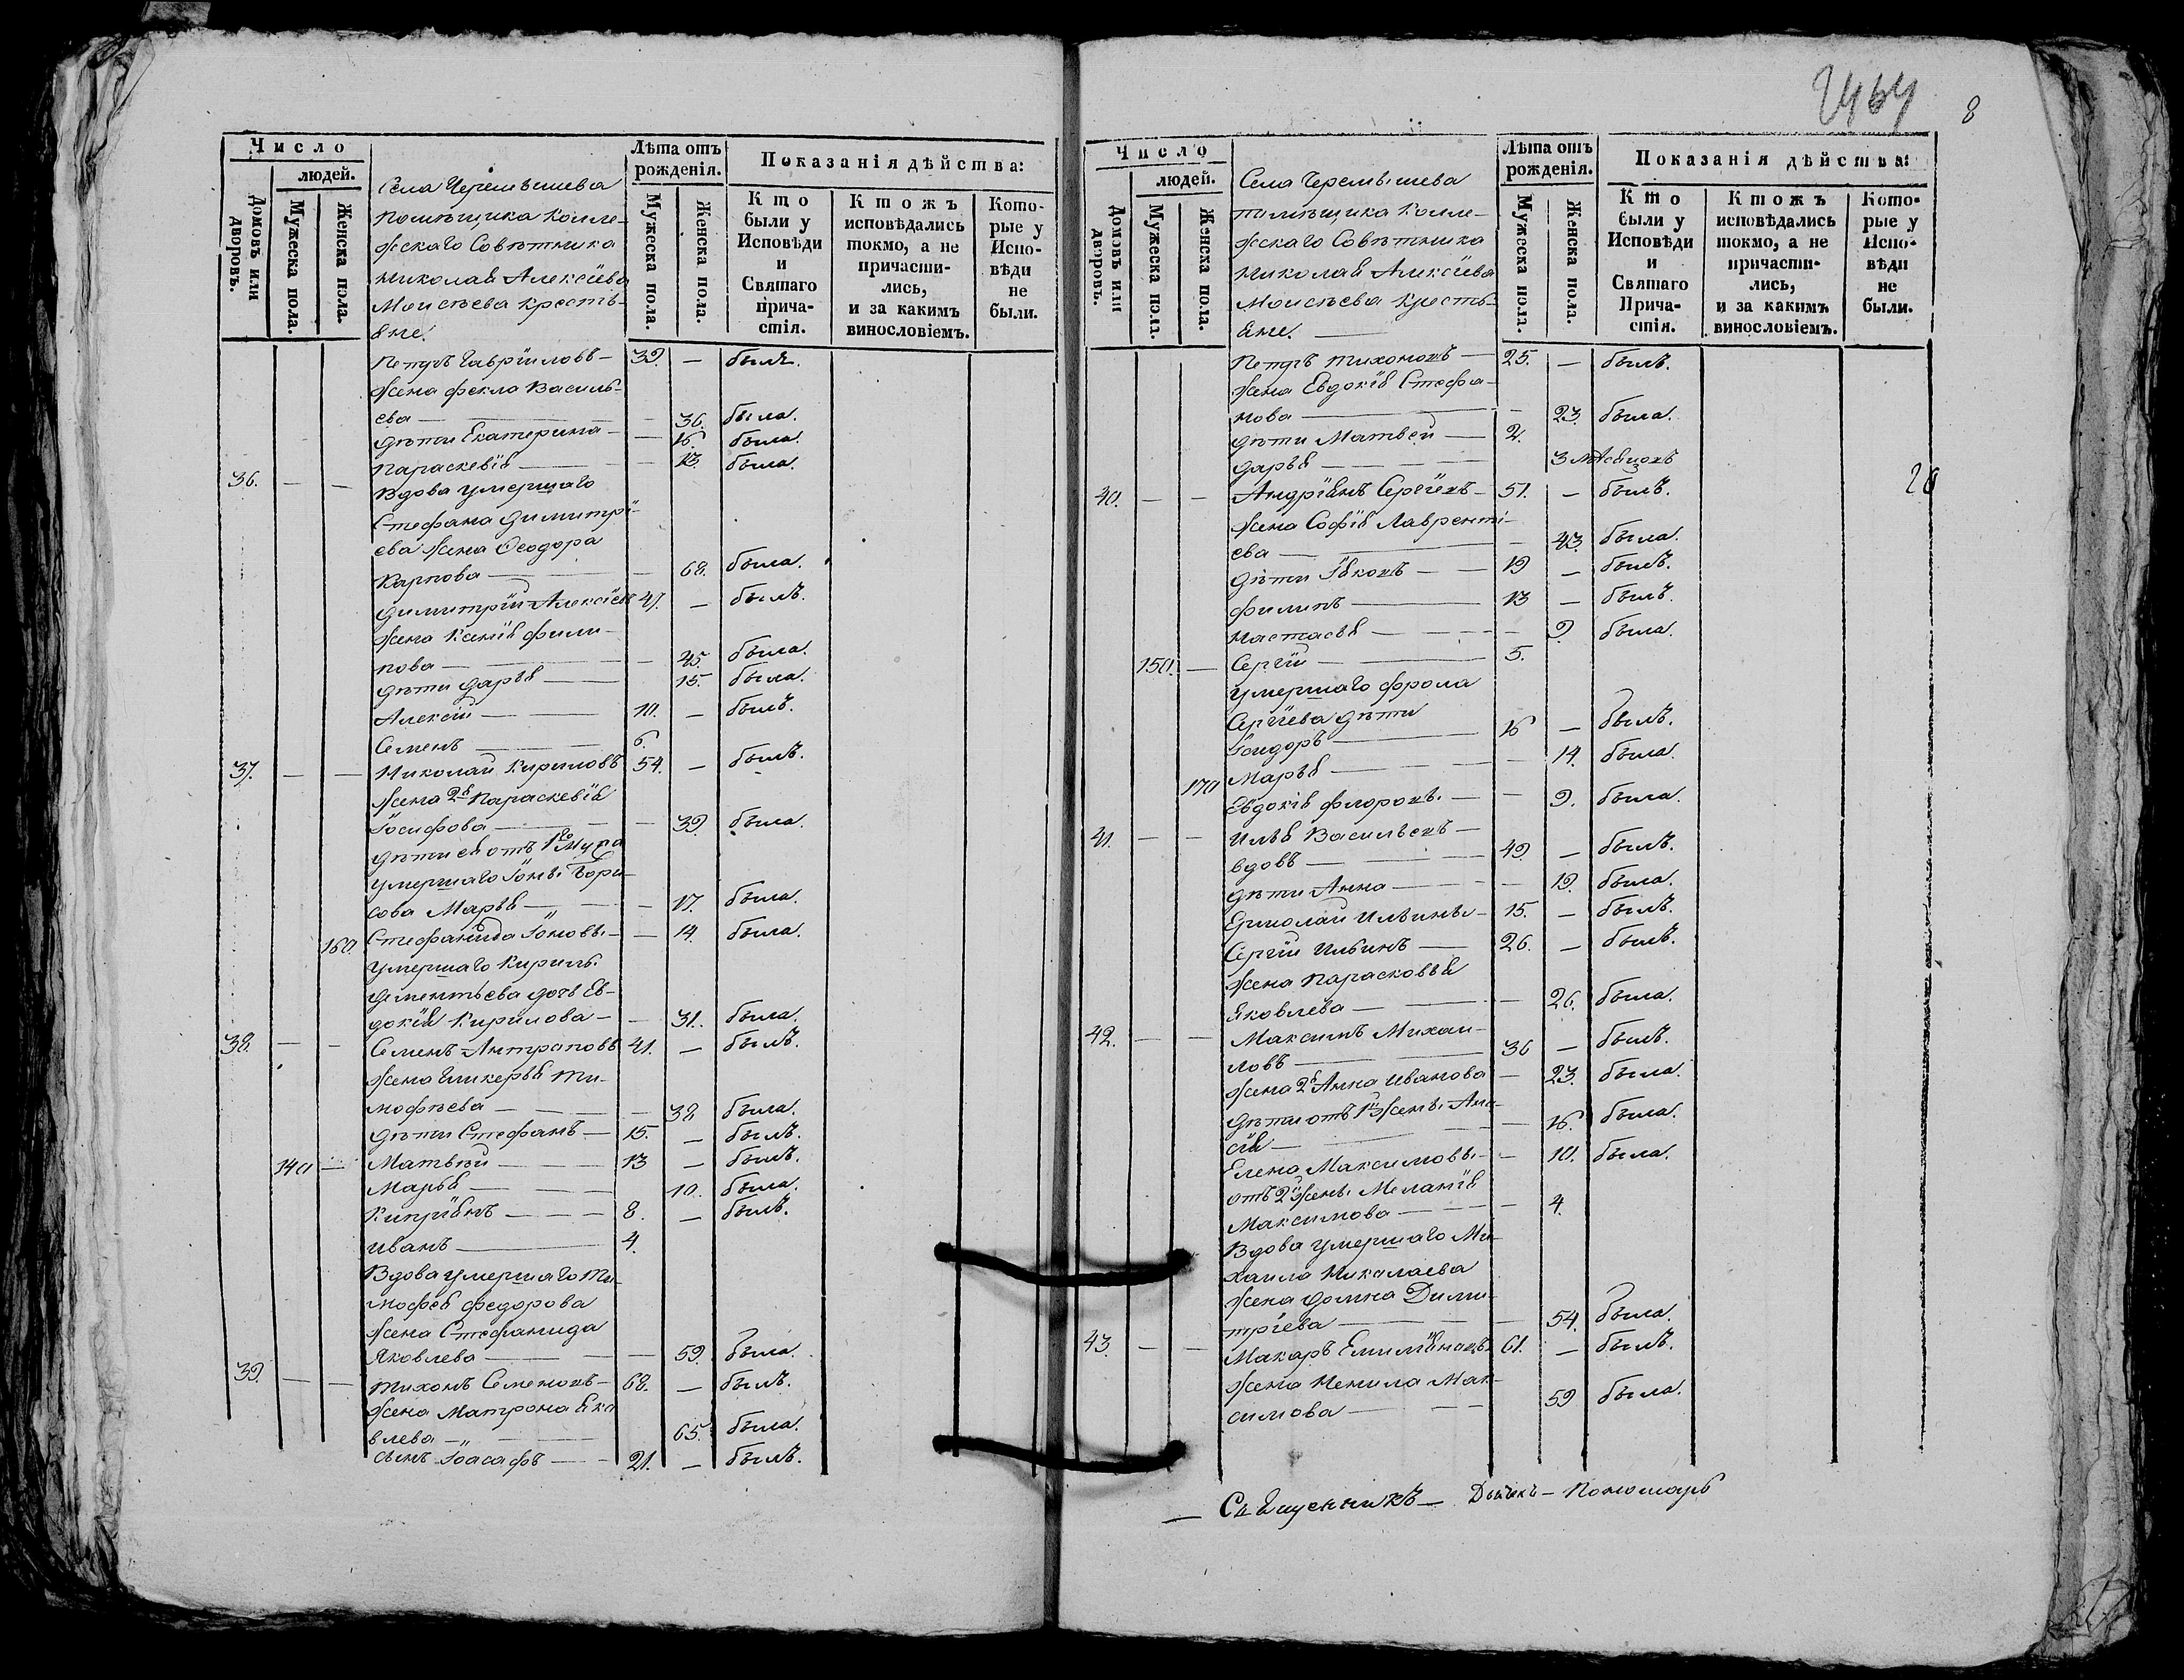 Число
людей.
Домовъ или дворовъ.
Мужеска пола.
Женска пола.
Села Черемышева
помѣщика Колле-
жскаго Совѣтника
Николая Алексіева
Моисѣева крестъ-
яне.
Лѣта отъ рожденія.
Мужеска пола.
Женска пола.
Показанія дѣйства:
Кто были у Исповѣди и Святаго причастія.
Ктожъ исповѣдались токмо, а не причасти-лись, и за какимъ винословіемъ.
Кото-рые у Испо-вѣди не были.
Петръ Гавріиловъ — 39. — былъ.
Жена Фекла Василь-
ева — 36. была.
Дѣти Екатерина — 16. была.
Параскевія — 13. была.
36. — — Вдова умершаго
Стефана Димитрі-
ева жена Ѳеодора
Карпова — 68. была.
Димитрій Алексіевъ 47. — былъ.
Жена Ксенія Фили-
пова — 45. была.
Дѣти Дарья — 15. была.
Алексій — 10. — былъ.
Семенъ — 6.
37. — — Николай Кириловъ 54. — былъ.
Жена 2я Параскевія
Іосифова — 39. была.
Дѣти ея отъ 1го Мужа
умершаго Іоны Бори-
сова Марья — 17. была.
160. Стефанида Іоновы — 14. была.
Умершаго Кирилы
Дементьева дочь Ев-
докія Кирилова — 31. была.
38. — — Семенъ Антраповъ 41. — былъ.
Жена Гликерья Ти-
мофѣева — 38 была.
Дѣти Стефанъ — 15. — былъ.
140 — Матвѣй — 13 — былъ.
Марья — 10. была.
Кипріянъ — 8. — былъ.
Иванъ — 4.
Вдова умершаго Ти-
мофея Федорова
жена Стефанида
Яковлева — 59. была.
39. — — Тихонъ Семеновъ — 68. — былъ.
Жена Матрона Яко
влева — 65. была.
Сынъ Іоасафъ — 21. — былъ.
8
Число
людей.
Домовъ или дворовъ.
Мужеска пола.
Женска пола.
Села Черемышева
помѣщика Колле-
жскаго Совѣтника
Николая Алексіева
Моисѣева крестъ-
яне. —
Лѣта отъ рожденія.
Мужеска пола.
Женска пола.
Показанія дѣйства:
Кто были у Исповѣди и Святаго Прича-стія.
Ктожъ исповѣдались токмо, а не причасти-лись, и за какимъ винословіемъ.
Кото-рые у Испо-вѣди не были.
Петръ Тихоновъ — 25. — былъ.
Жена Евдокія Стефа-
нова — 23. была.
Дѣти Матвей — 2.
Дарья — 3 мѣсяцовъ
40. — — Андріянъ Сергіевъ — 51. — былъ.
Жена Софія Лавренті-
ева — 43. была.
Дѣти Яковъ — 19 — былъ.
Филипъ — 13 — былъ.
Настасья — 9. была.
150. — Сергій — 5.
Умершаго Фрола
Сергіева дѣти
Сидоръ — 16 — былъ.
Марья — 14. была.
170 Евдокія Флоровы. — 9. была.
41. — — Илья Васильевъ —
вдовъ — 49. — былъ.
Дѣти Анна — 19. была.
Ермолай Ильины — 15. — былъ.
Сергій Ильинъ — 26. — былъ.
Жена Парасковья
Яковлева — 26. была.
42. — — Максимъ Михаи-
ловъ — 36 — былъ.
Жена 2я Анна Иванова — 23. была.
Дѣти отъ 1й жены Ана-
сія — 16. была.
Елена Максимовы — 10. была.
отъ 2й жены Меланія
Максимова — 4.
Вдова умершаго Ми-
хаила Николаева
жена Домна Дими-
тріева — 54. была.
43. — — Макаръ Емиліановъ 61. — былъ.
Жена Ненила Мак-
симова — 59 была.
— Священникъ — Дьячкъ — Пономарь